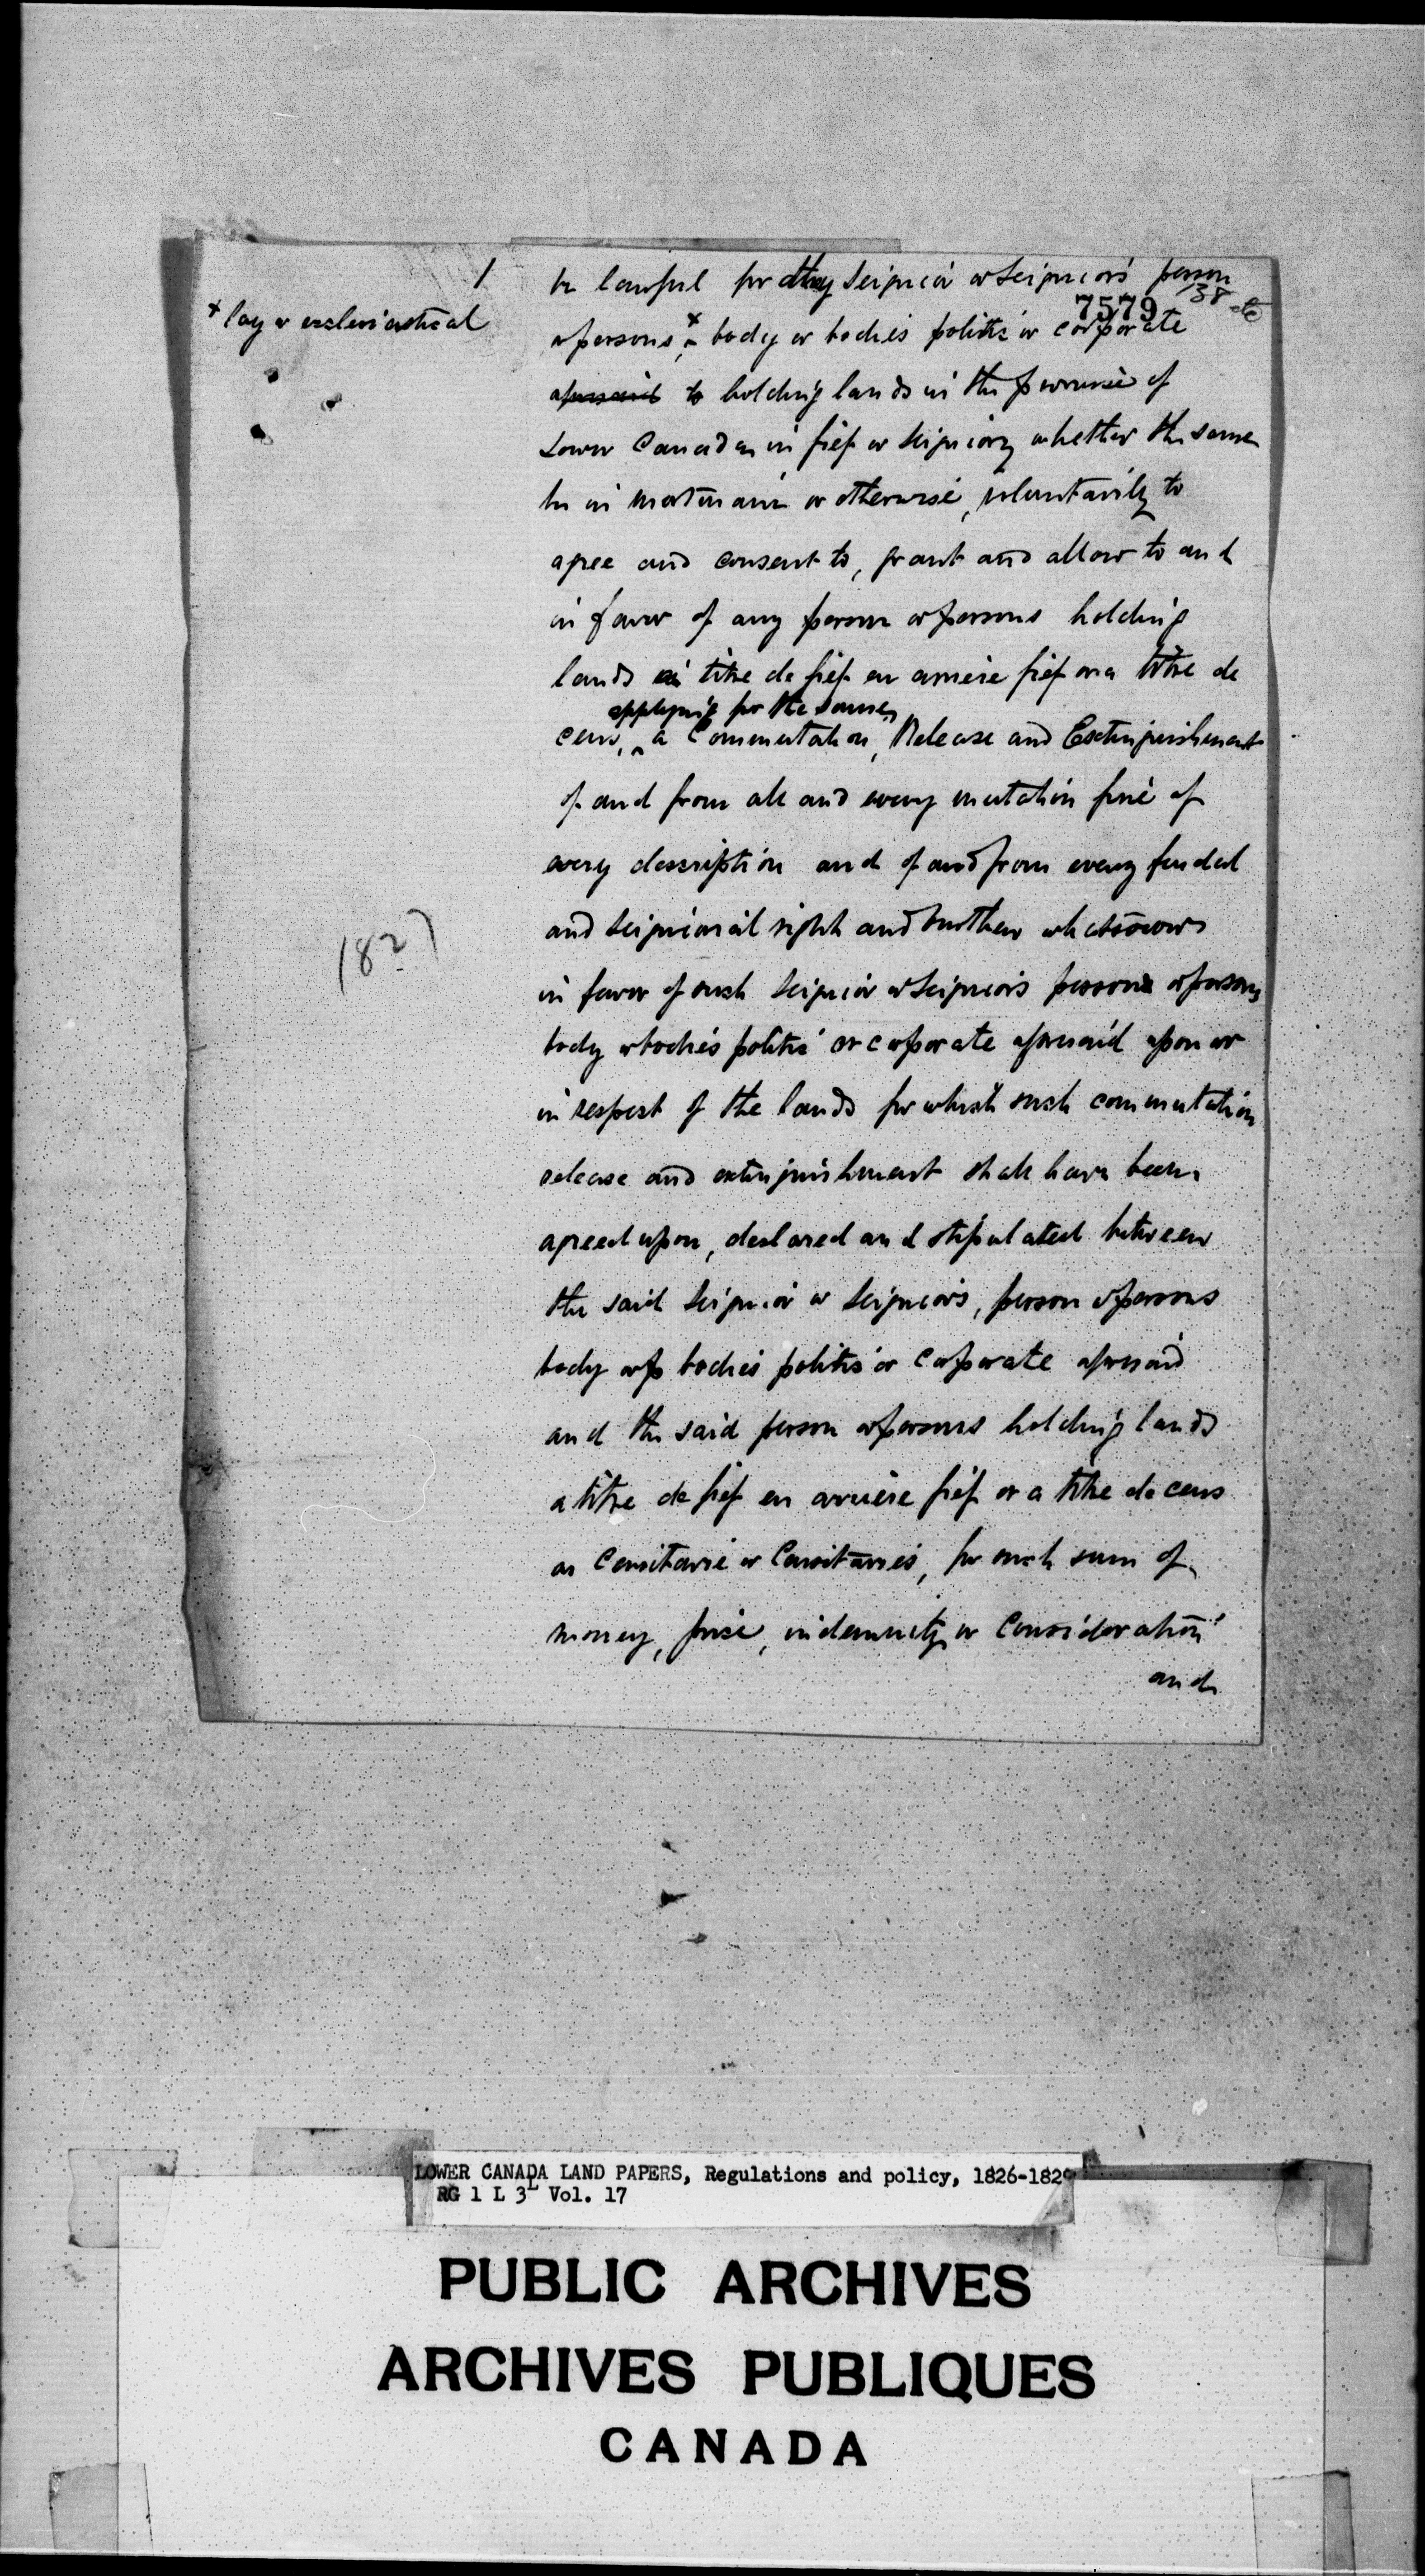 1
be lawful for any Seignior or Seigniors person
138
7579
x lay or ecclesiastical
or persons, x body or bodies politic or corporate
aforesaid to holding lands in the province of
Lower Canada in fief or Seigniory whether the same
be in mortmain or otherwise, voluntarily to
agree and consent to, grant and allow to and
in favor of any person or persons holding
lands a titre de fief en arriere fief or a titre de
applying for the same,
cens, ^ a Commutation, Release and Extinguishment
of and from all and every mutation fine of
every description and of and from every feudal
and Seigniorial right and burthen whatsoever
1827
in favor of such Seignior or Seigniors person or persons
body or bodies politic or corporate aforesaid upon or
in respect of the lands for which such commutation
release and extinguishment shall have been
agreed upon, declared and stipulated between
the said Seignior or Seigniors, person or persons
body or bodies politic or corporate aforesaid
and the said person or persons holding lands
a titre de fief en arriere fief or a titre de cens
as Censitaire or Censitaires, for such sum of
money, price, indemnity or Consideration
and
LOWER CANADA LAND PAPERS, Regulations and policy, 1826-1829
RG 1 L 3L Vol. 17
PUBLIC ARCHIVES
ARCHIVES PUBLIQUES
CANADA